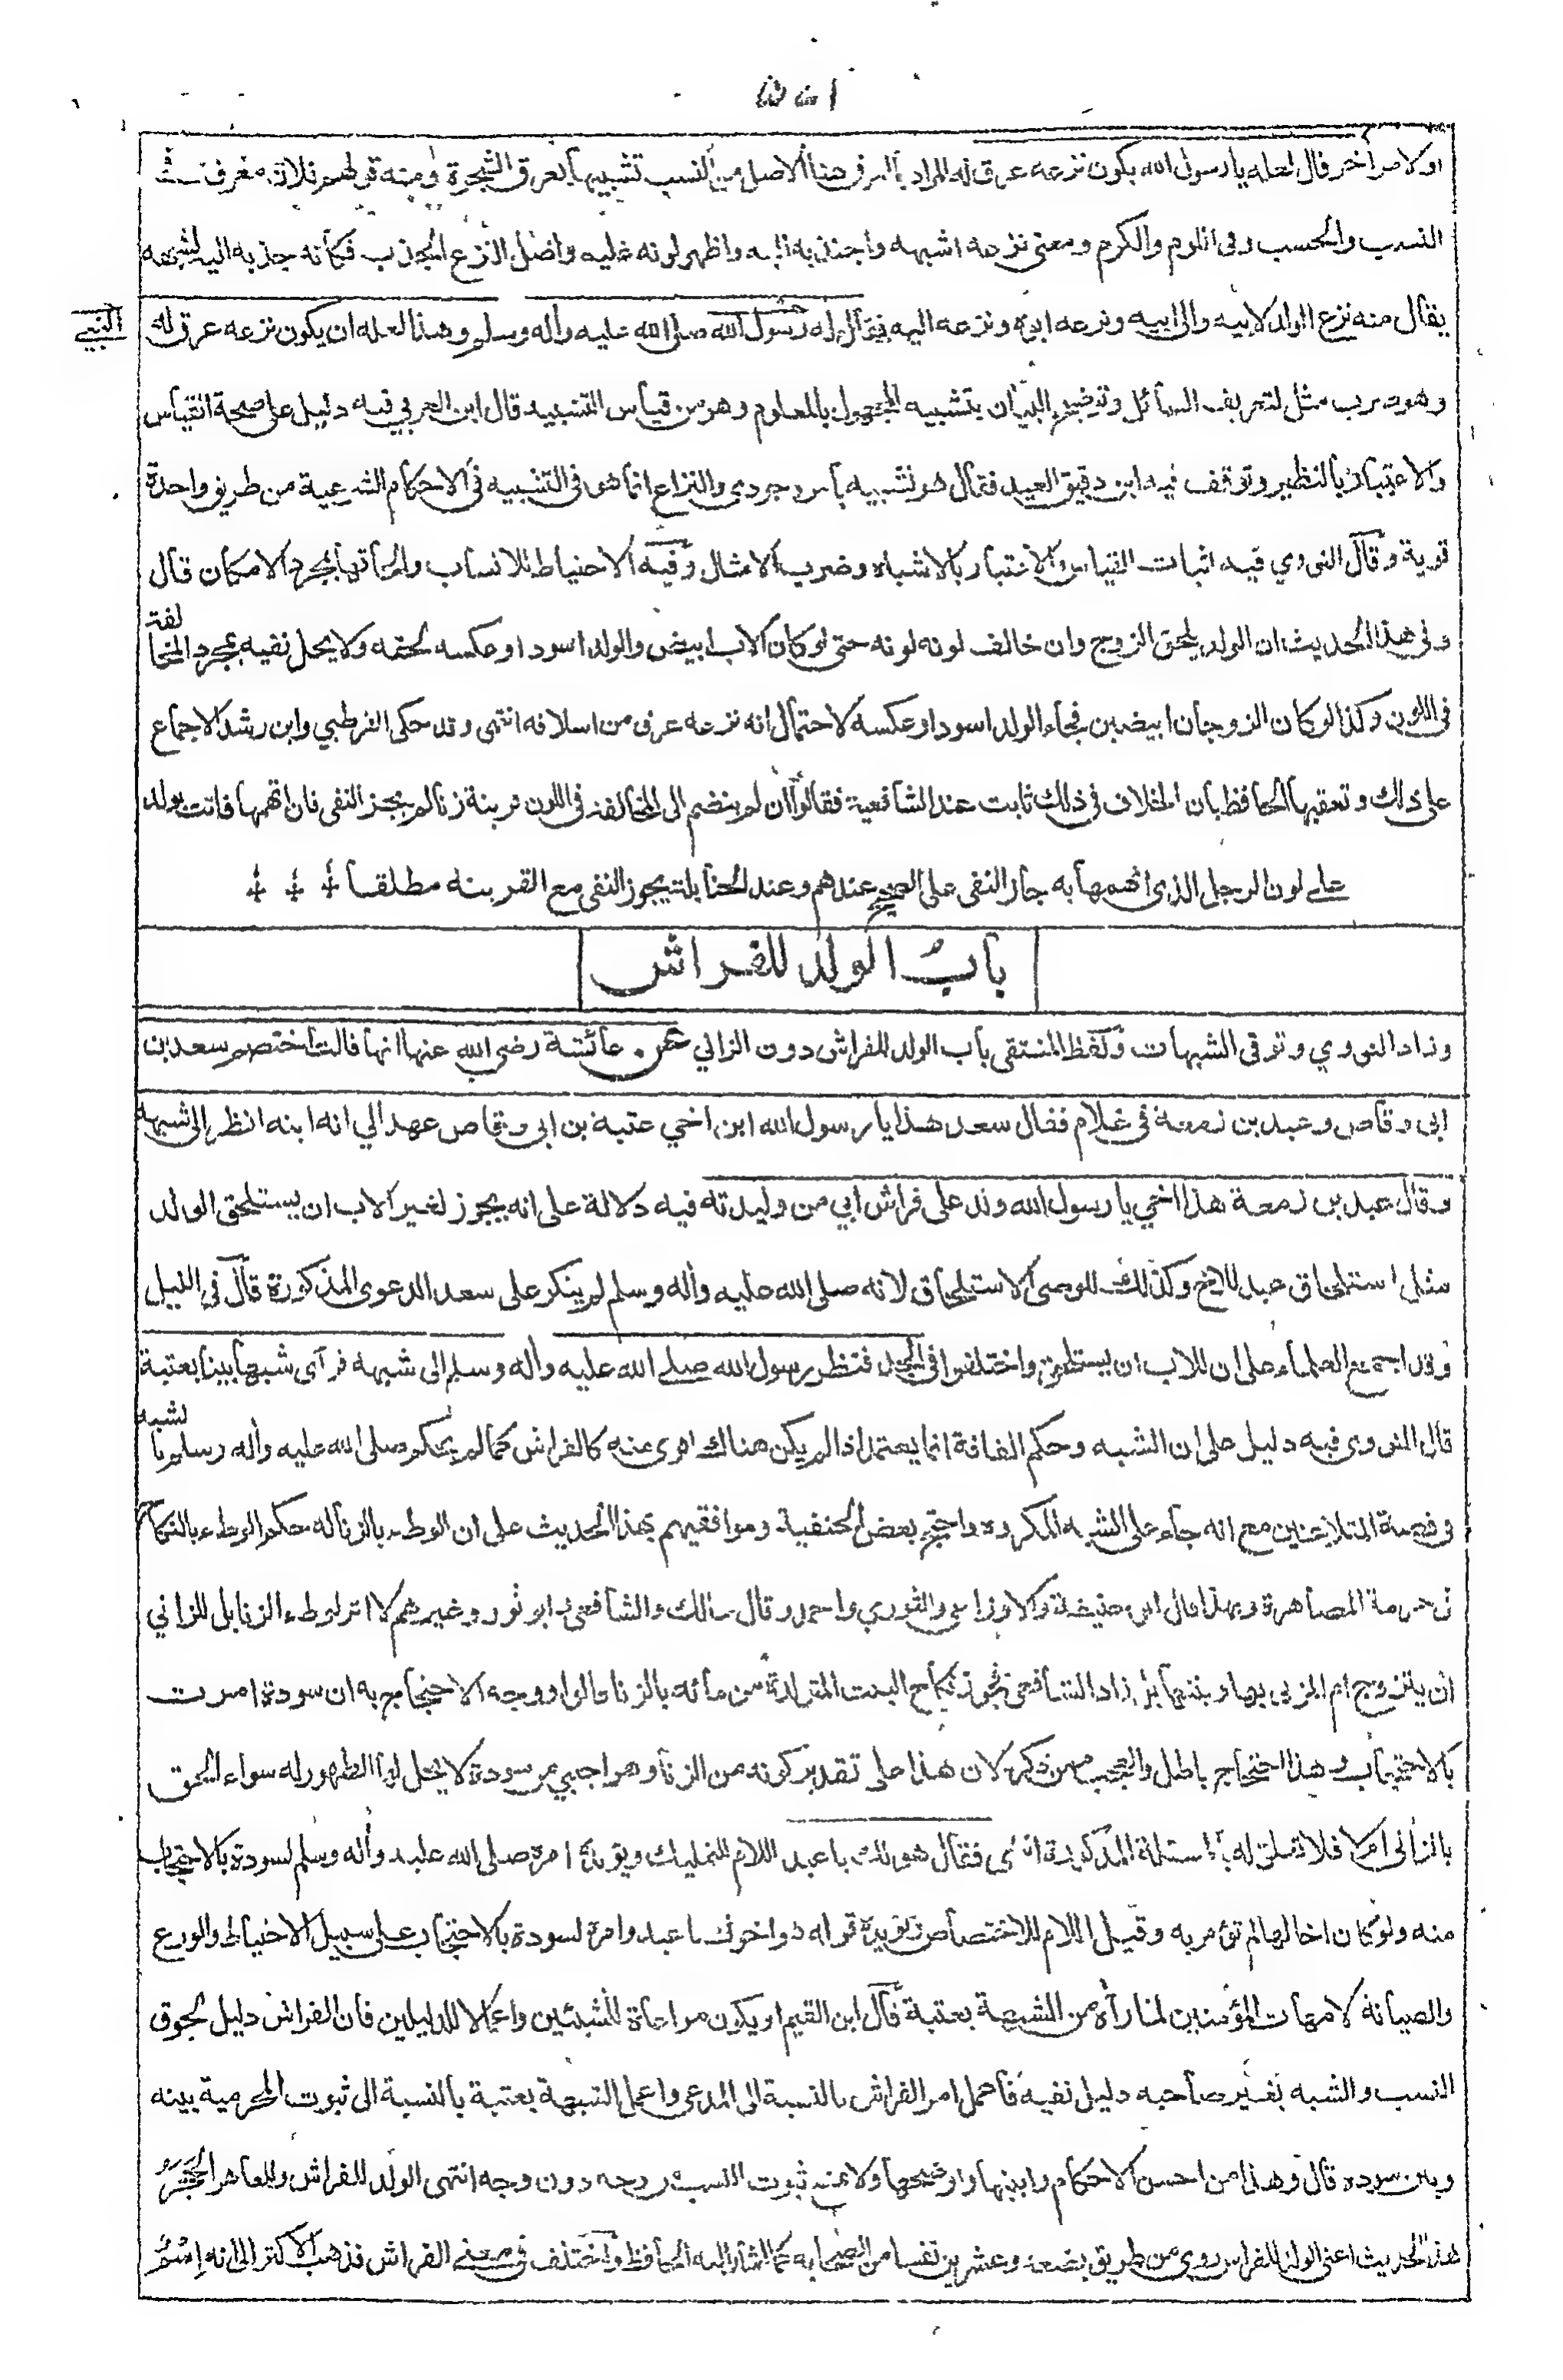 او لامر آخر قال لعله يا رسول الله يكون نزعه عرق له المراد بالعرق هنا الاصل من النسب تشبيها بعرق الشجرة ومنه قولهم فلان معرق في
النسب والحسب وفي اللوم والكرم ومعنى نزعه اشبهه واجتذبه اليه واظهر لونه عليه واصل النزع الجذب فكأنه جذبه اليه لشبهه
يقال منه نزع الولد لابيه والى ابيه ونزعه ابوه ونزعه اليه فقال له رسول الله صلى الله عليه وأله وسلم وهذا لعله ان يكون نزعه عرق له
النبي
وهو ضرب مثل لتعريف السائل وتوضيح البيان بتشبيه المجهول بالمعلوم وهو من قياس التشبيه قال ابن العربي فيه دليل على صحة القياس
والاعتبار بالنظير وتوقف فيه ابن دقيق العيد فقال هو تشبيه بأمر وجودي والنزاع انما هو في التشبيه في الاحكام الشرعية من طريق واحدة
قوية وقال النووي فيه اثبات القياس والاعتبار بالاشباه وضرب الامثال وفيه الاحتياط للانساب والحاقها بمجرد الامكان قال
وفي هذا الحديث ان الولد يلحق الزوج وان خالف لونه لونه حتى لو كان الاب ابيض والولد اسود او عكسه لحقه ولا يحل نفيه بمجرد المخالفة
في اللون وكذا لو كان الزوجان ابيضين فجاء الولد اسود او عكسه لاحتمال انه نزعه عرق من اسلافه انتهى وقد حكى القرطبي وابن رشد الاجماع
على ذلك وتعقبها الحافظ بأن الخلاف في ذلك ثابت عند الشافعية فقالوا ان لم ينضم الى المخالفة في اللون قرينة زنا لم يجز النفي فان اتهمها فاتت بولد
على لون الرجل الذي اتهمها به جاز النفي على الصحيح عندهم وعند الحنابلة يجوز النفي مع القرينة مطلقا
بابُ الولد للفراش
وزاد النووي وتوقى الشبهات ولفظ المنتقى باب الولد للفراش دون الزاني عن عائشة رضي الله عنها انها قالت اختصم سعد بن
ابي وقاص وعبد بن زمعة في غلام فقال سعد هذا يا رسول الله ابن اخي عتبة بن ابي وقاص عهد الي انه ابنه انظر الى شبهه
وقال عبد بن زمعة هذا اخي يا رسول الله ولد على فراش ابي من وليدته فيه دلالة على انه يجوز لغير الاب ان يستلحق الولد
مثل استلحاق عبد للاخ وكذلك للوصي الاستلحاق لانه صلى الله عليه وأله وسلم لم ينكر على سعد الدعوى المذكورة قال في النيل
وقد اجمع العلماء على ان للاب ان يستلحق واختلفوا في الجد فنظر رسول الله صلى الله عليه وأله وسلم الى شبهه فرآى شبها بينا بعتبة
قال النووي فيه دليل على ان الشبه وحكم القافة انما يعتمد اذا لم يكن هناك اقوى منه كالفراش كما لم يحكم صلى الله عليه وأله وسلم بالشبه
في قصة المتلاعنين مع انه جاء على الشبه المكروه واحتج بعض الحنفية وموافقيهم بهذا الحديث على ان الوطء بالزنا له حكم الوطء بالنكاح
في حرمة المصاهرة وبهذا قال ابو حنيفة والاوزاعي والثوري واحمد وقال مالك والشافعي وابو ثور وغيرهم لا اثر لوطء الزنا بل للزاني
ان يتزوج ام المزني بها وبنتها بل زاد الشافعي فجوز نكاح البنت المتولدة من مائه بالزنا قالوا ووجه الاحتجاج به ان سودة امرت
بالاحتجاب وهذا احتجاج باطل والعجب ممن ذكره لان هذا على تقدير كونه من الزنا وهو اجنبي من سودة لا يحل لها الظهور له سواء الحق
بالزاني ام لا فلا تعلق له بالمسئلة المذكورة انتهى فقال هو لك يا عبد اللام للتمليك ويؤيده امره صلى الله عليه وأله وسلم لسودة بالاحتجاب
منه ولو كان اخا لها لم تؤمر به وقيل اللام للاختصاص تؤيده قوله هو اخوك يا عبد وامره لسودة بالاحتجاب على سبيل الاحتياط والورع
والصيانة لامهات المؤمنين لما رآه من الشبهة بعتبة قال ابن القيم او يكون مراعاة للشيئين واعمالا للدليلين فان الفراش دليل لحوق
النسب والشبه بغير صاحبه دليل نفيه فأعمل امر الفراش بالنسبة الى المدعي واعمل الشبهة بعتبة بالنسبة الى ثبوت المحرمية بينه
وبين سودة قال وهذا من احسن الاحكام وابينها واوضحها ولا يمنع ثبوت النسب من وجه دون وجه انتهى الولد للفراش وللعاهر الحَجَرُ
هذا الحديث اعني الولد للفراش روي من طريق بضعة وعشرين نفسا من الصحابة كما اشار اليه الحافظ واختلف في معنى الفراش فذهب الاكثر الى انه اسم